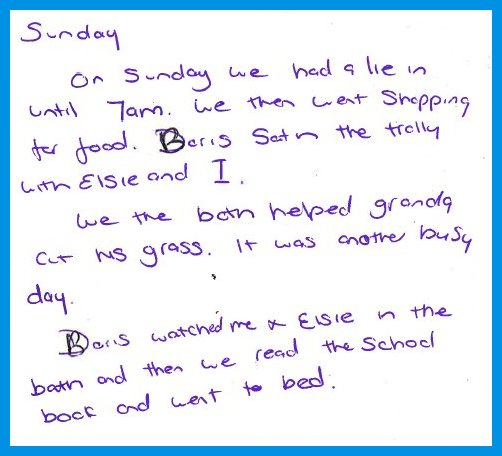 Sunday
On Sunday we had a lie in
until 7am. We then went Shopping
for food. Boris Sat in the trolly
with Elsie and I.
We the both helped granda
cut his grass. It was another busy
day.
Boris watched me & Elsie in the
bath and then we read the School
book and went to bed.